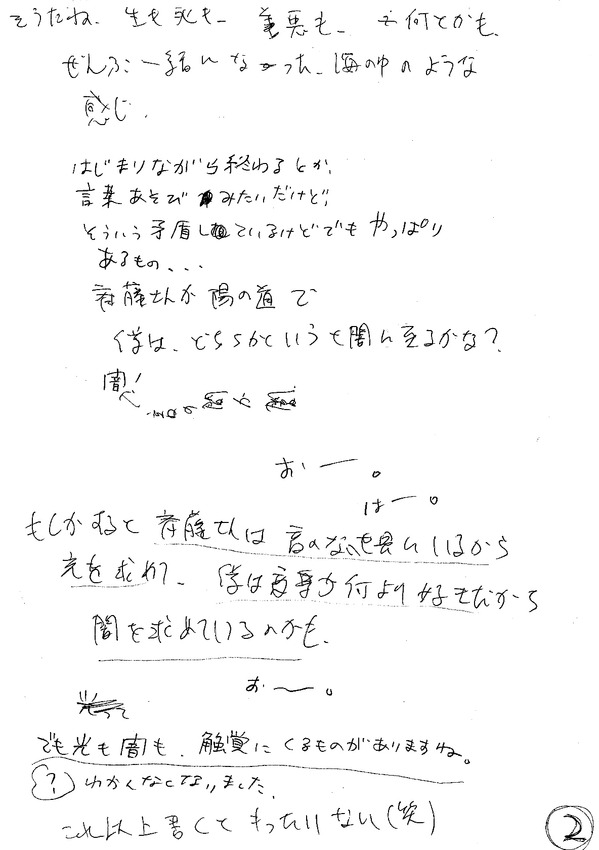 そうだね、生も死も、善悪も、何とかも、
ぜんぶ一緒になった、海の中のような
感じ、
はじまりながら終わるとか、
言葉あそびみたいだけど、
そういう矛盾しているけどでもやっぱり
あるもの、、、
斉藤さんが陽の道で
僕は、どちらかというと闇に至るかな？
闇！
おー。
はー。
もしかすると斉藤さんは音のない世界にいるから
光を求めて、僕は音楽が何より好きだから
闇を求めているのかも、
おー。
でも光も闇も、触覚にくるものがありますね。
(?)わかくなくなりました、
これ以上書くともったいない(笑)
②